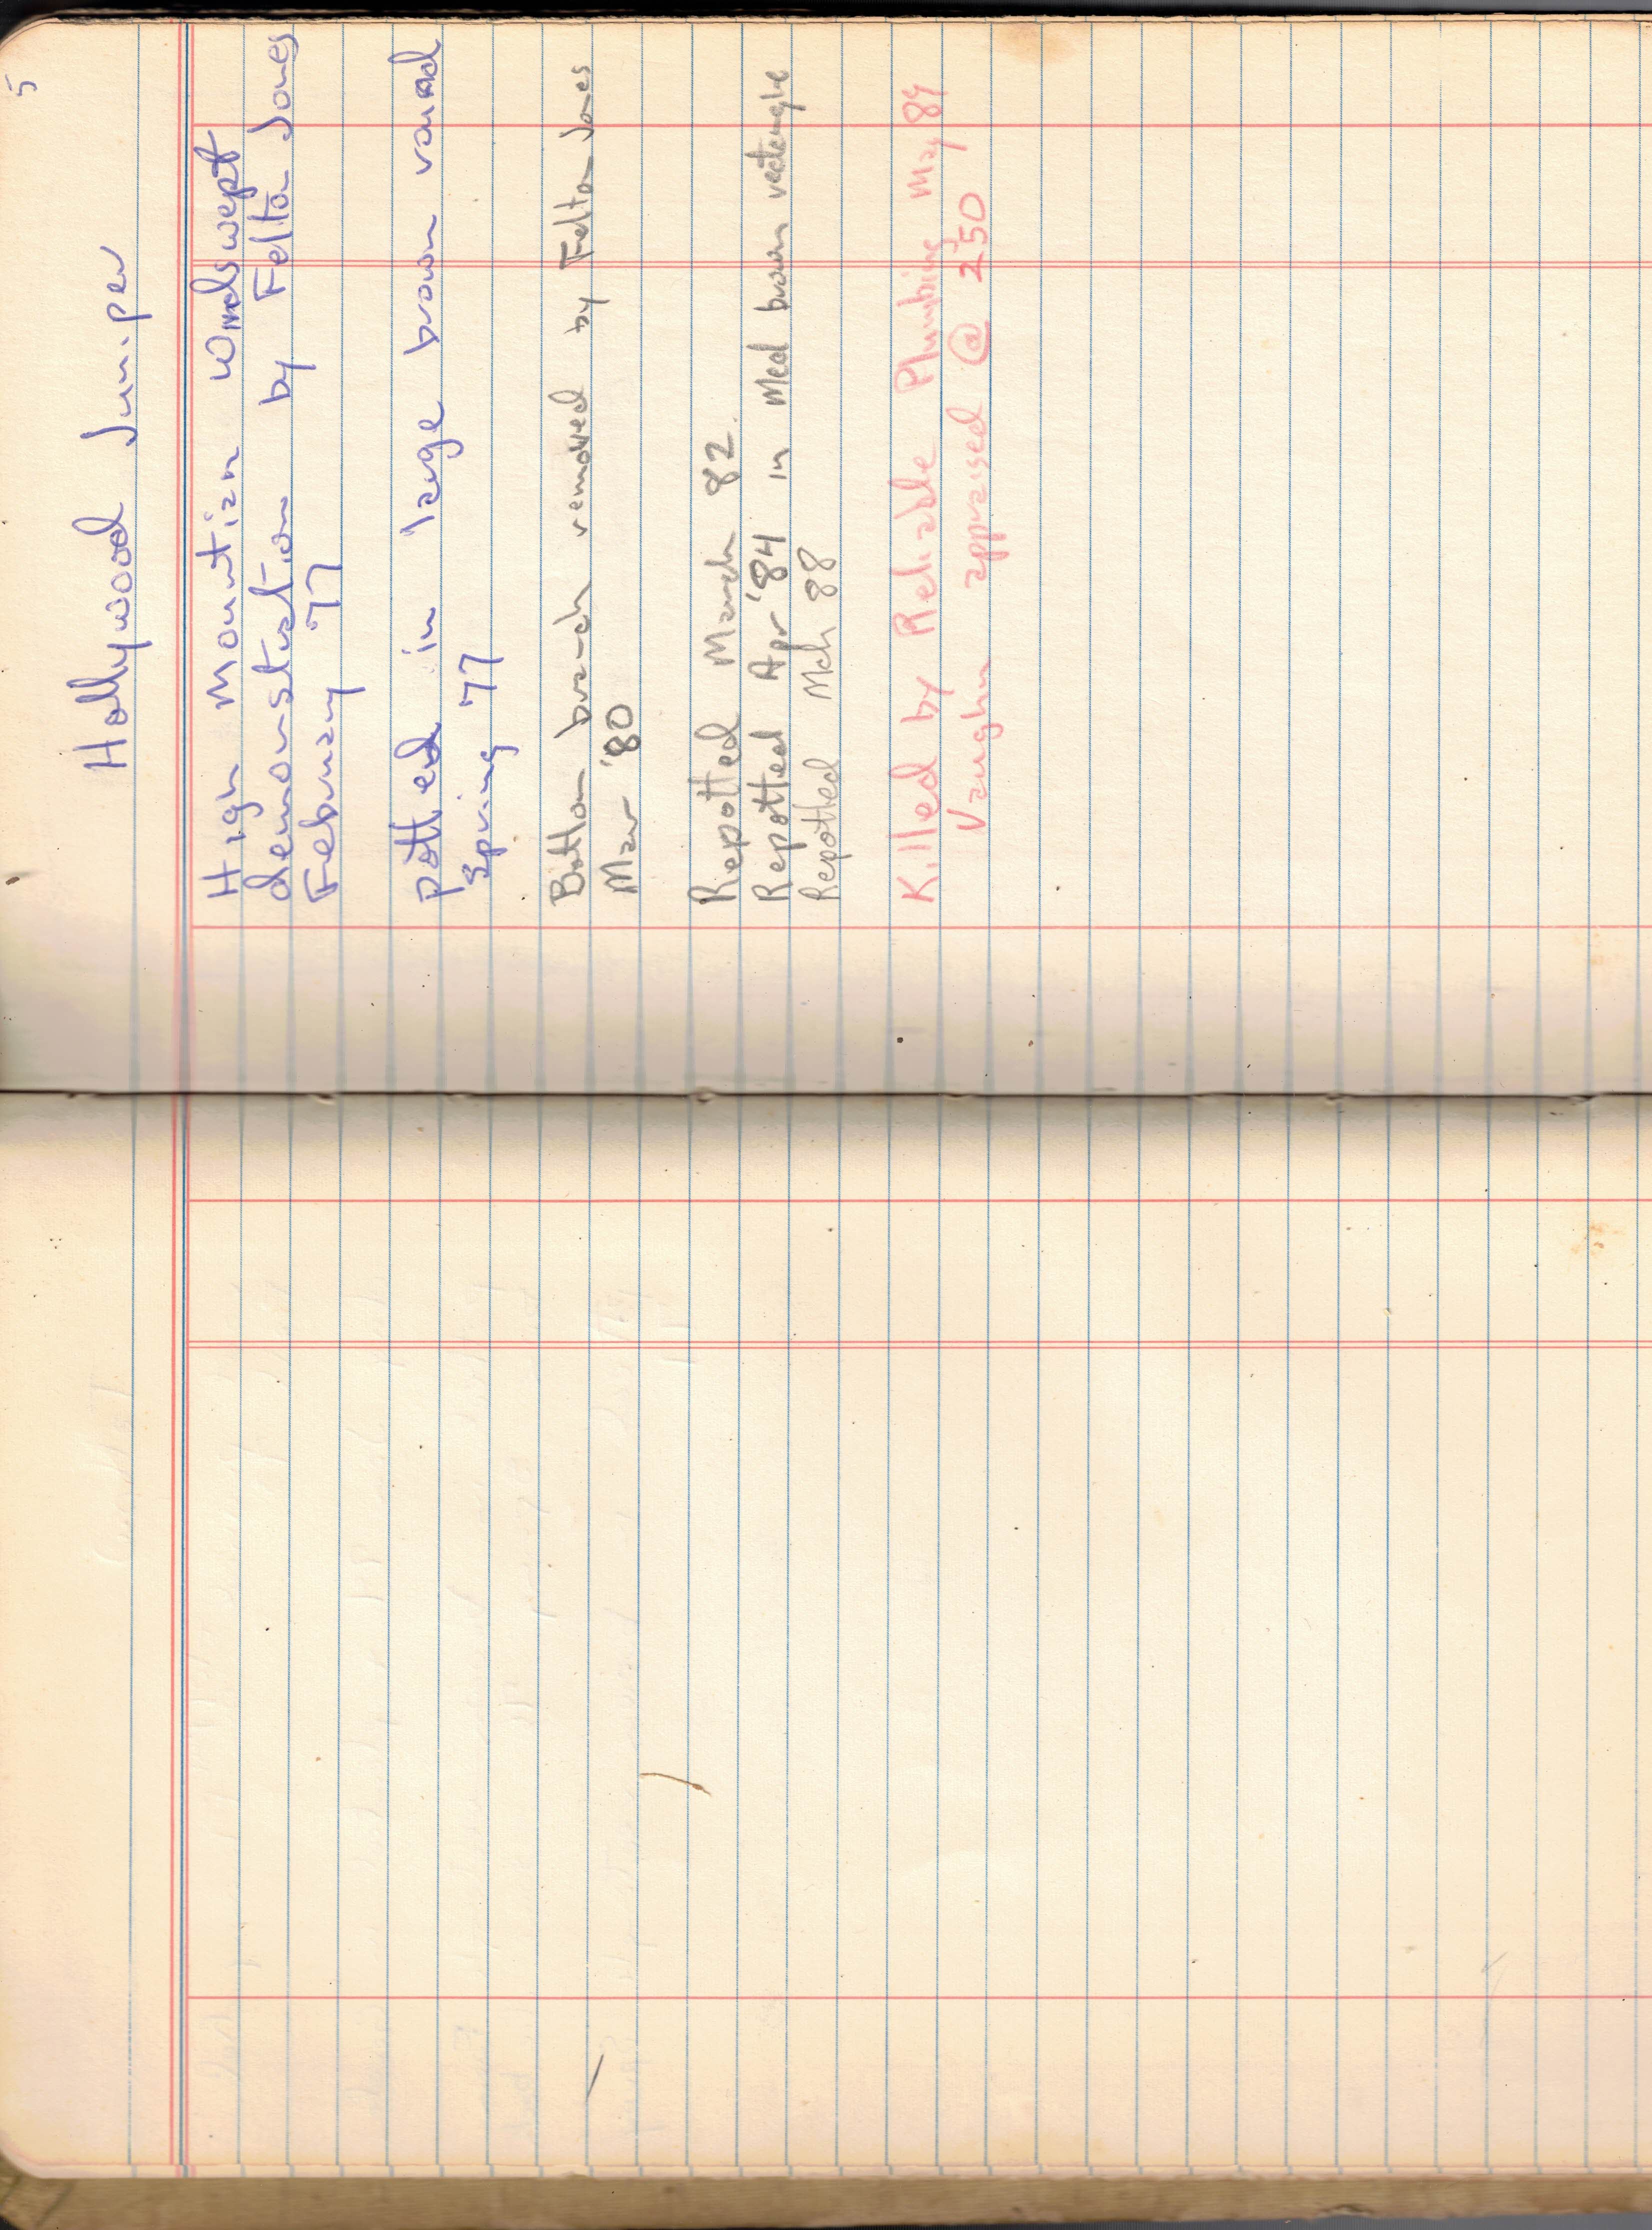 5
Hollywood Juniper
High Mountian Windswept
demonstration by Felton Jones
February 77
potted in large brown round
Spring 77
Bottom branch removed by Felton Jones
Mar '80
Repotted March 82.
Repotted Apr '84 in Med brown rectangle
Repotted Mch 88
Killed by Reliable Plumbing May 89
Vaughn appraised @ 250